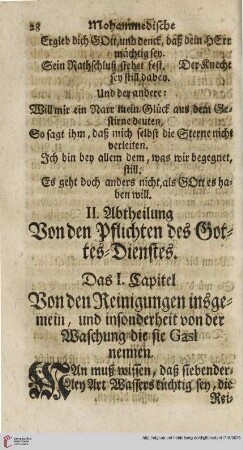 28 Mohammedische
Ergieb dich GOtt, und denck, daß dein HErr
mächtig sey.
Sein Rathschluß stehet fest. Der Knecht
sey still dabey.
Und der andere:
Will mir ein Narr mein Glück aus dem Ge-
stirne deuten,
So sagt ihm, daß mich selbst die Sterne nicht
verleiten.
Ich bin bey allem dem, was mir begegnet,
still.
Es geht doch anders nicht, als GOtt es ha-
ben will.
II. Abtheilung
Von den Pflichten des Got-
tes-Dienstes.
Das I. Capitel
Von den Reinigungen insge-
mein, und insonderheit von der
Waschung die sie Gasl
nennen.
MAn muß wissen, daß siebender-
ley Art Wassers tüchtig sey, die
Rei-